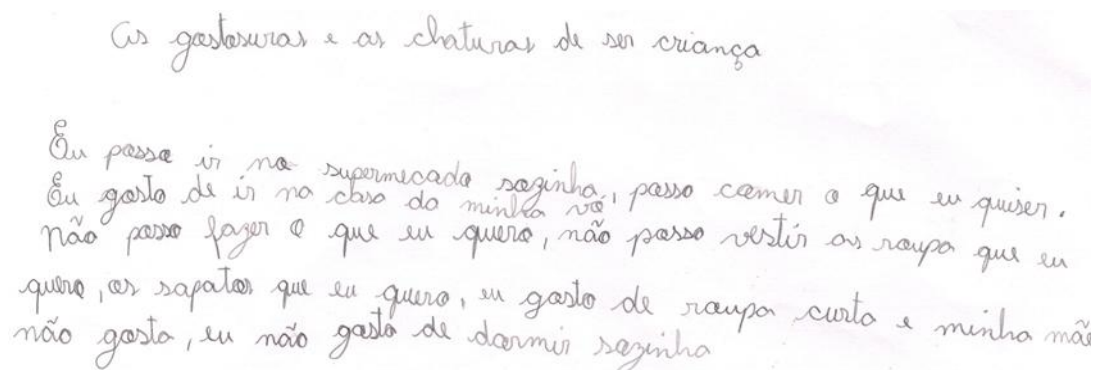 As gostosuras e as chaturas de ser criança
Eu posso ir no supermecado sozinha, posso comer o que eu quiser.
Eu gosto de ir na casa da minha vó
não posso fazer o que eu quero, não posso vestir as roupa que eu
quero, os sapatos que eu quero, eu gosto de roupa curta e minha mãe
não gosta, eu não gosto de dormir sozinha